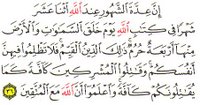 إِنَّ عِدَّةَ ٱلشُّهُورِ عِندَ ٱللَّهِ ٱثْنَا عَشَرَ
شَهْرًا فِى كِتَـٰبِ ٱللَّهِ يَوْمَ خَلَقَ ٱلسَّمَـٰوَٰتِ وَٱلْأَرْضَ
مِنْهَآ أَرْبَعَةٌ حُرُمٌ ذَٰلِكَ ٱلدِّينُ ٱلْقَيِّمُ فَلَا تَظْلِمُوا۟ فِيهِنَّ
أَنفُسَكُمْ وَقَـٰتِلُوا۟ ٱلْمُشْرِكِينَ كَآفَّةً كَمَا
يُقَـٰتِلُونَكُمْ كَآفَّةً وَٱعْلَمُوٓا۟ أَنَّ ٱللَّهَ مَعَ ٱلْمُتَّقِينَ ٣٦